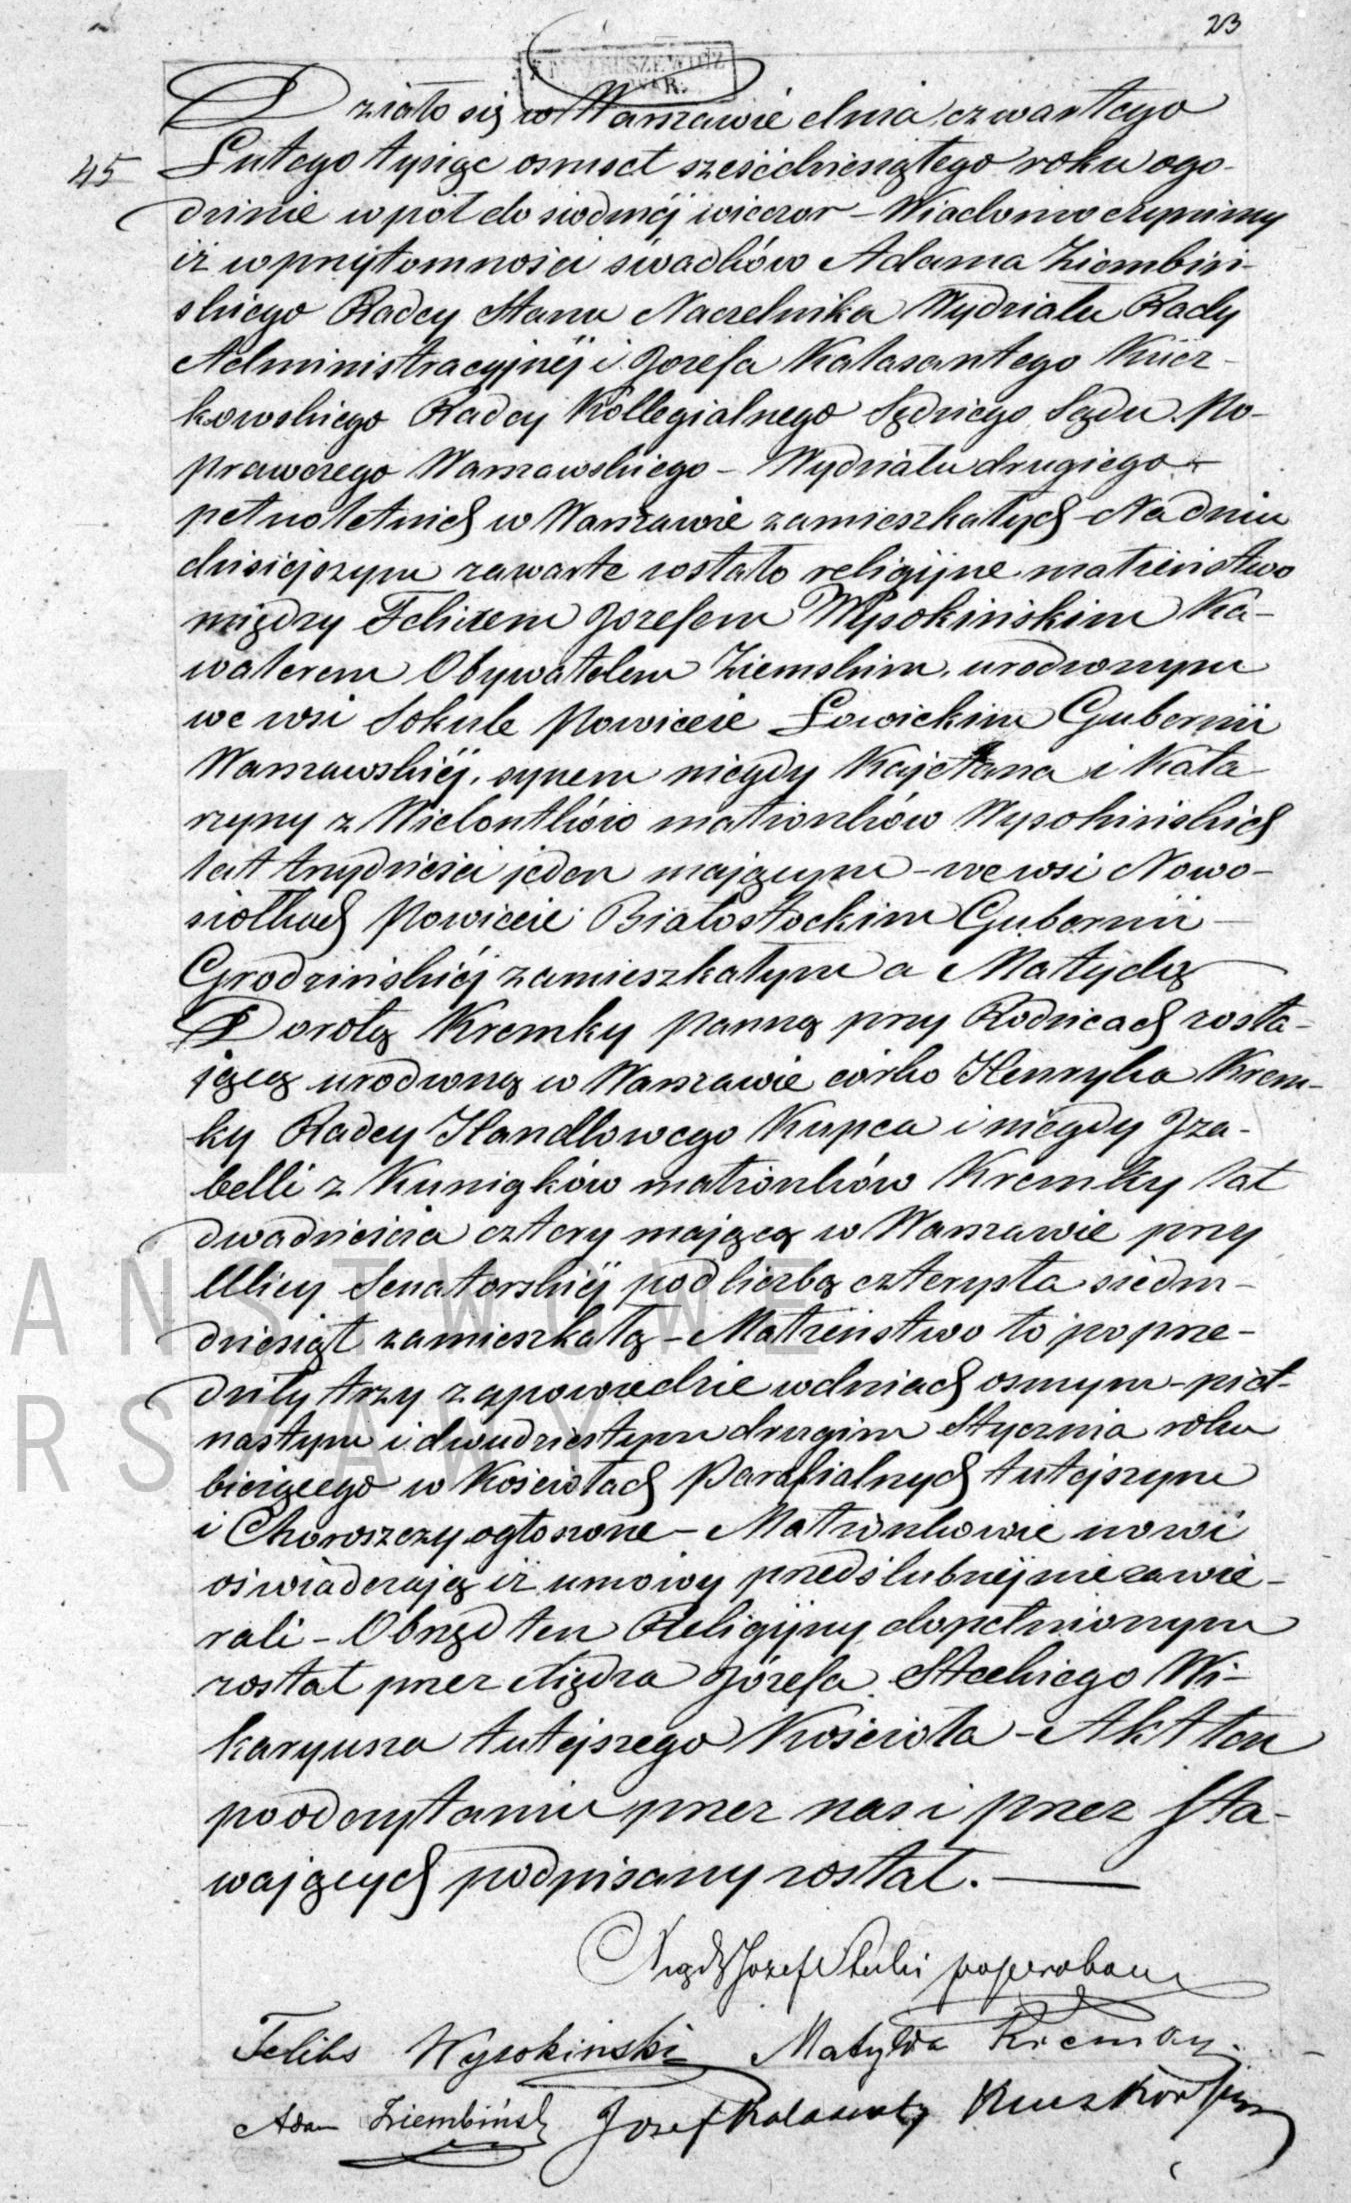 23
45
Działo się w Warszawie dnia czwartego
Lutego tysiąc osmset sześćdziesiątego roku o go-
dzinie wpół do siodméj wieczor – Wiadomo czynimy
iż w przytomności świadków Adama Ziembiń-
skiego Radcy Stanu Naczelnika Wydziału Rady
Administracyjnéj i Jozefa Kalasantego Kucz-
kowskiego Radcy Kollegialnego Sędziego Sądu Po-
prawczego Warszawskiego – Wydziału drugiego –
pełnoletnich w Warszawie zamieszkałych – Na dniu
dzisiejszym zawarte zostało religijne małżeństwo
między Felixem Jozefem Wysokińskim Ka-
walerem Obywatelem Ziemskim, urodzonym
we wsi Sokule Powiecie Łowickim Gubernii
Warszawskiéj, synem niegdy Kajetana i Kata
rzyny z Wielontków małżonków Wysokińskich
lat trzydzieści jeden mającym – we wsi Nowo-
siołkach Powiecie Białostockim Gubernii –
Grodzińskiéj zamieszkałym a Matyldą
Dorotą Kremky panną przy Rodzicach zosta-
jącą urodzoną w Warszawie córko Henryka Krem-
ky Radcy Handlowego Kupca i niegdy Iza-
belli z Kunigków małżonków Kremky lat
dwadzieścia cztery mającą w Warszawie przy
Ulicy Senatorskiéj pod liczbą czterysta siedm-
dziesiąt zamieszkałą – Małżeństwo to poprze-
dziły trzy zapowiedzie w dniach osmym – pięt-
nastym i dwudziestym drugim Stycznia roku
bieżącego w Kościołach Parafialnych tutejszym
i Choroszczy ogłoszone – Małżonkowie nowi
oświadczają iż umowy przedślubnéj nie zawie-
rali – Obrzęd ten Religijny dopełnionym
został przez Xiędza Józefa Steckiego Wi-
karyusza tutejszego Kościoła – Akt ten
po odczytaniu przez nas i przez Sta-
wających podpisany został. —
Xiądz Jozef Stecki
Feliks Wysokiński Matylda Kremky.
Adam Ziembiński Jozef Kalasanty Kuczkowski